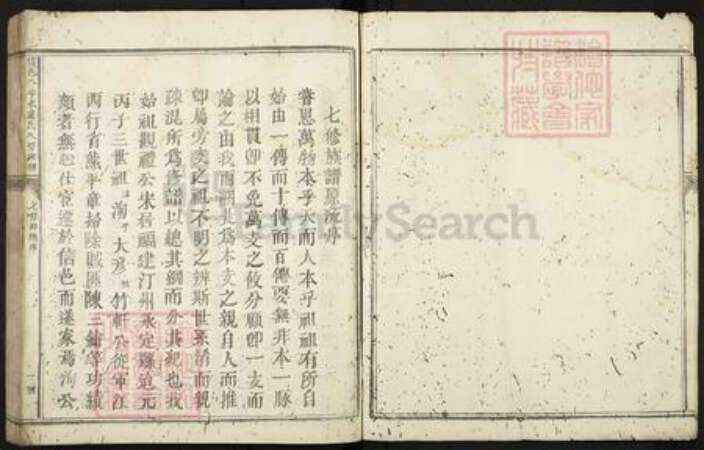 七修族譜原流序
嘗思萬物本乎天而人本乎祖祖有所自
始由一傳而十傳而百傳要無非本一脉
以相貫卽不免萬支之攸分顧卽一支而
論之由我而溯其為本支之親自人而推
卽屬旁支之祖不明之辨斯世系淆而親
疎混所為修譜以總其綱而分其紀也我
始祖觀禮公宋居福建汀州永定縣迨元
丙子三世祖諱淘字大彥號竹軒公從軍江
西行省燕平章掃除賊匪陳三鎗等功績
頗著無心仕宦遂於信邑而遂家焉淘公
七修譜原序
一號
FamilySearch